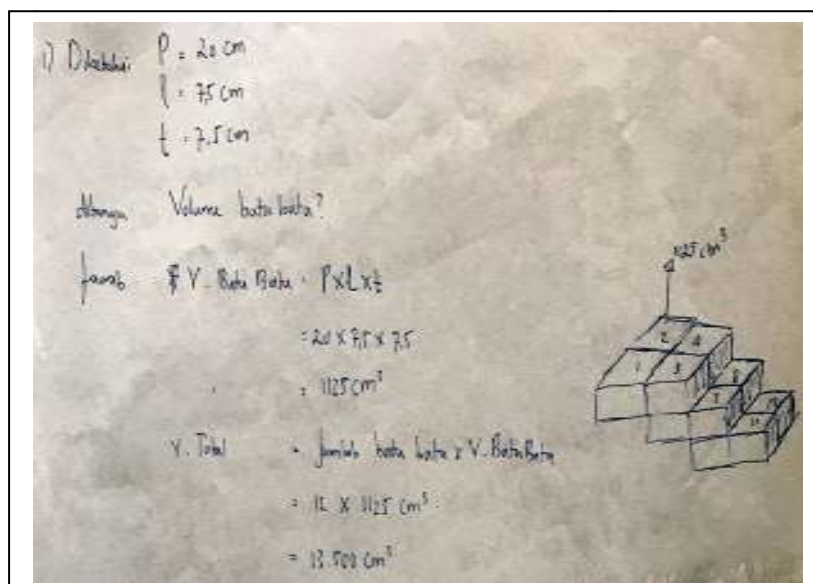 1) Diketahui P = 20 cm
l = 7,5 cm
t = 7,5 cm
ditanya Volume batu bata?
Jawab V. Batu Bata = P x L x t
= 20 x 7,5 x 7,5
= 1125 cm³
V. Total = Jumlah batu bata x V. Batu Bata
= 12 x 1125 cm³
= 13.500 cm³
1125 cm³
2 4
1 3
8
7